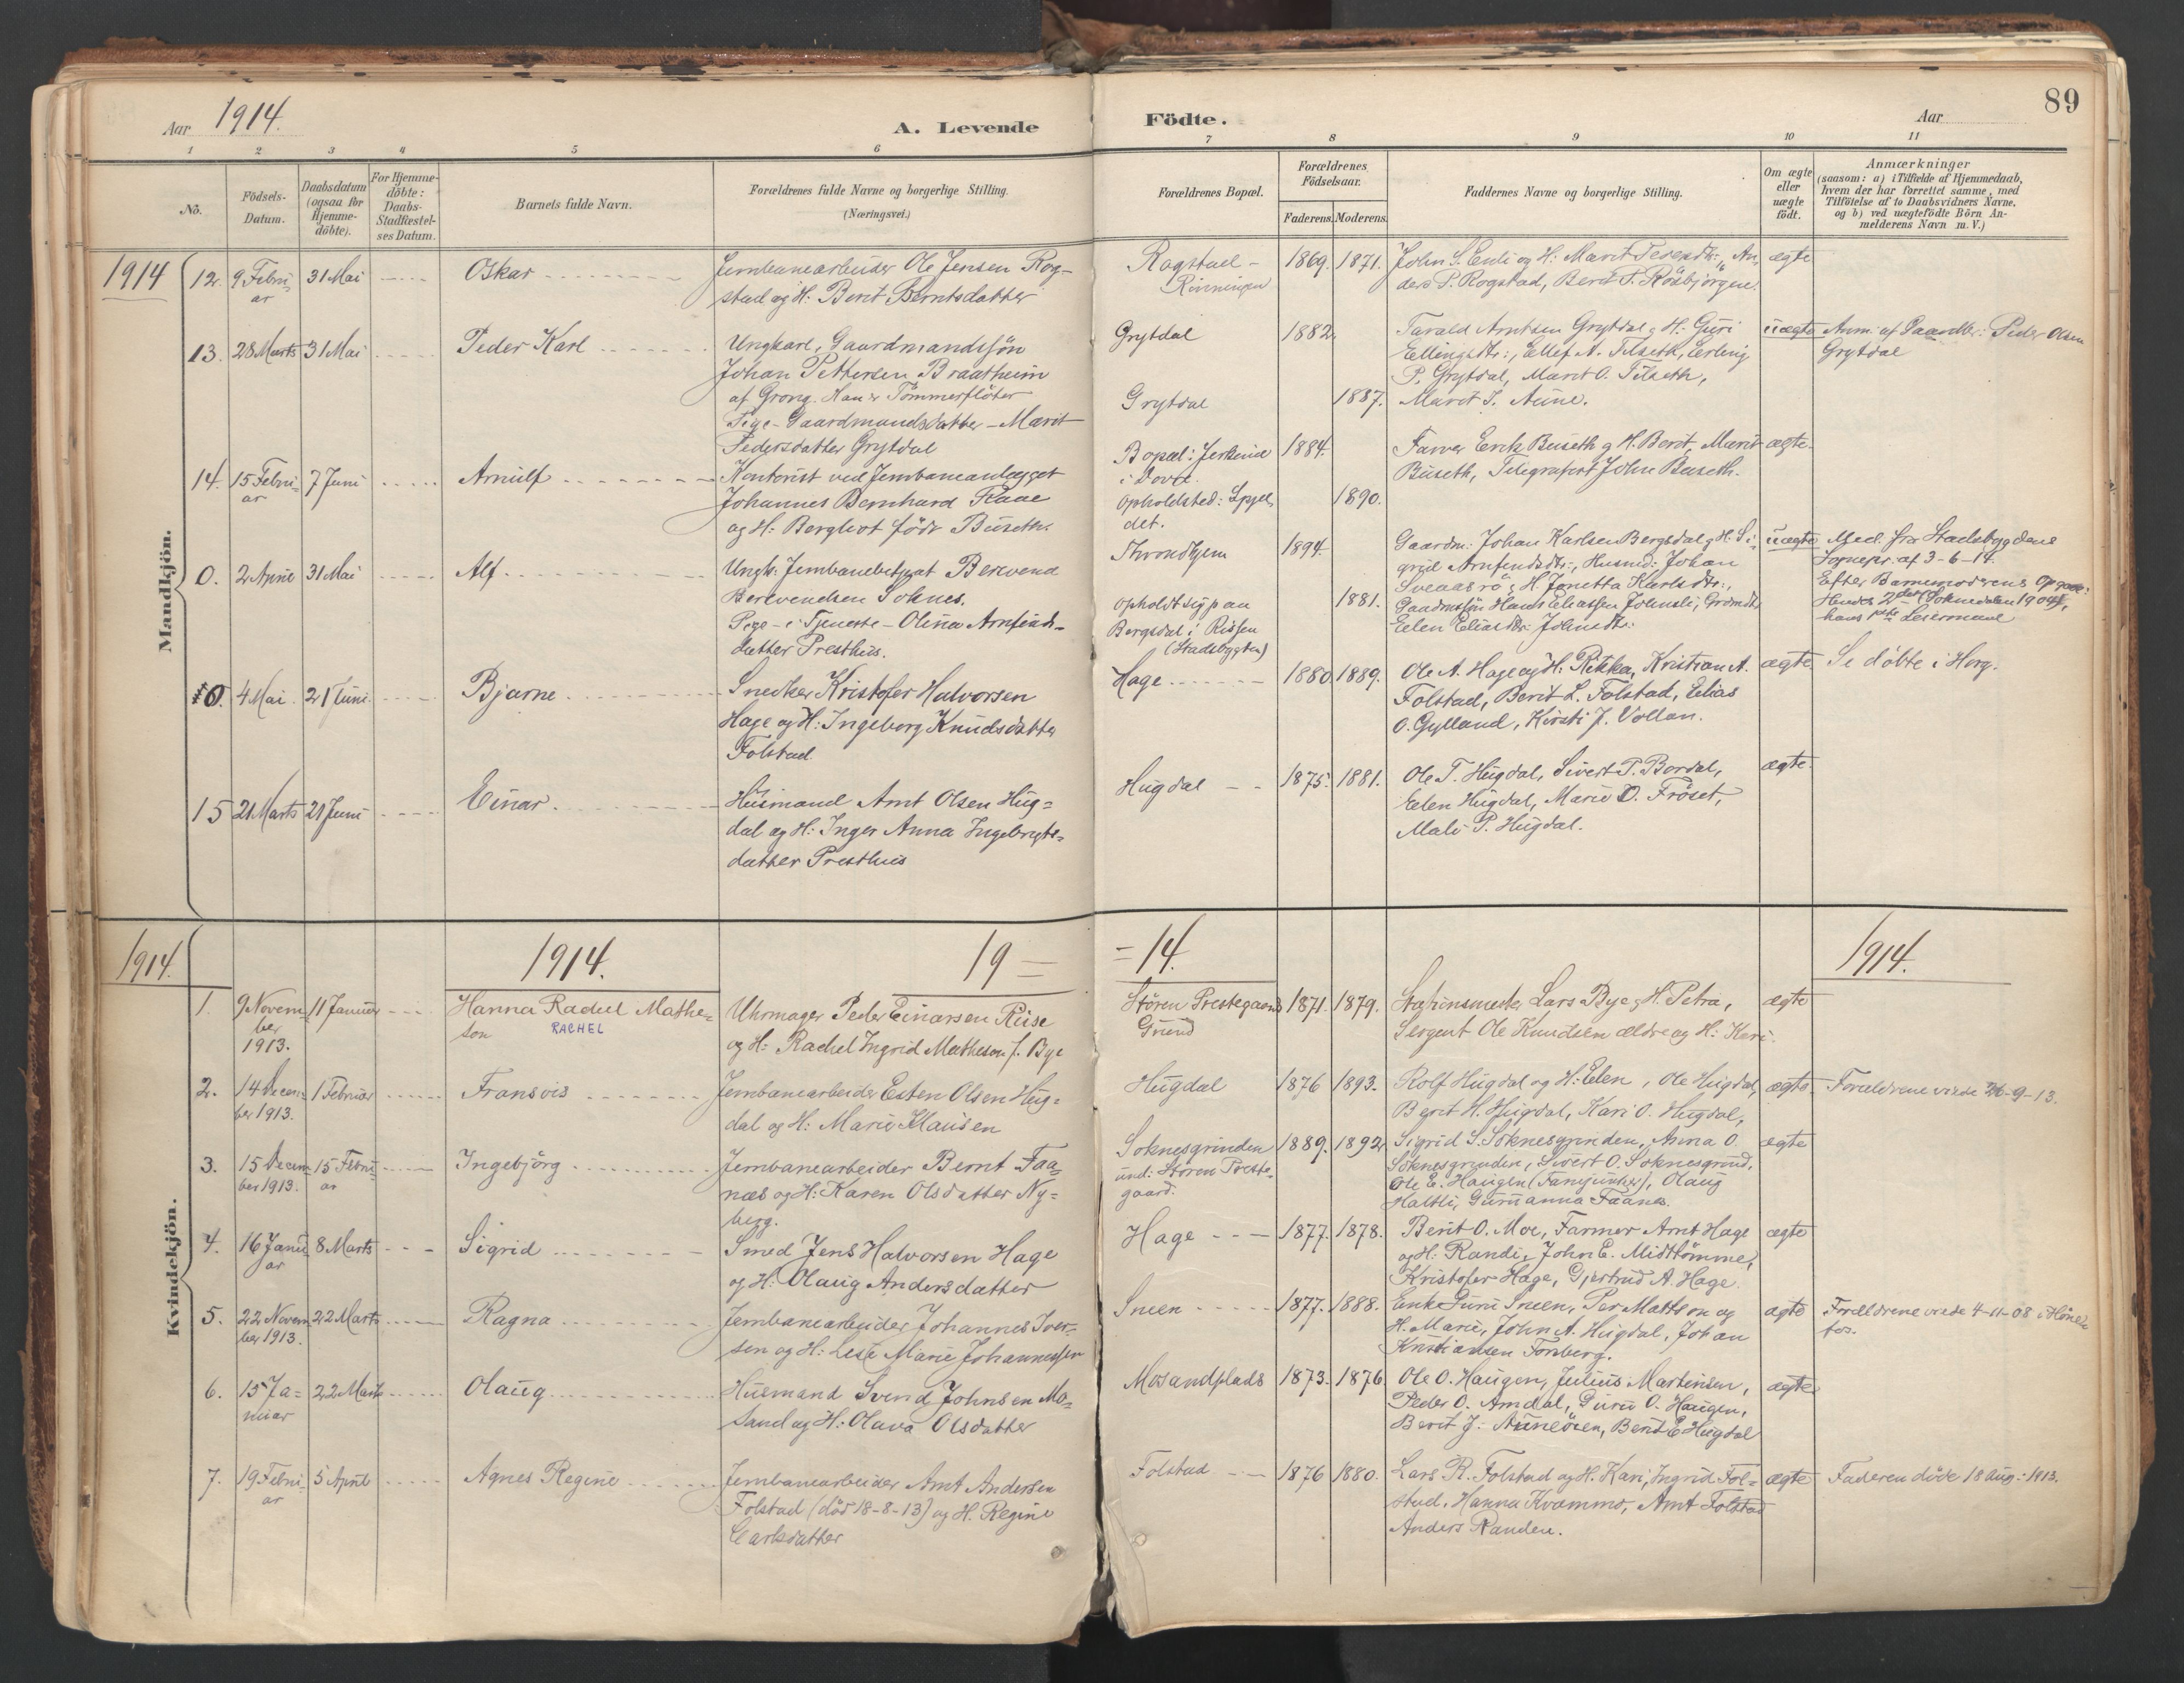 Aar 1914.
A. Levende
Födte.
Aar
89
1 2 3 4 5 6 7 8 9 10 11
Nö.
Födsels-
Datum.
Daabsdatum
(ogsaa for
Hjemme-
döbte).
For Hjemme-
döbte:
Daabs-
Stadfæstel-
ses Datum.
Barnets fulde Navn.
Forældrenes fulde Navne og borgerlige Stilling.
(Næringsvei.)
Forældrenes Bopæl.
Forældrenes
Födselsaar.
Faderens. Moderens.
Faddernes Navne og borgerlige Stilling.
Om ægte
eller
uægte
födt.
Anmærkninger
(saasom: a) i Tilfælde af Hjemmedaab,
hvem der har forrettet samme, med
Tilföielse af to Daabsvidners Navne,
og b) ved uægtefödte Börn An-
melderens Navn m. V.)
1914
Mandkjön.
12. 9 Febru-
ar
31 Mai
Oskar
Jernbanearbeider Ole Jensen Rog-
stad og H: Berit Berntsdatter
Rogstad-
Rönningen
1869. 1871.
John S. Enli og H: Marit Tesendtr:, An-
ders P. Rogstad, Berit T. Rösbjörgen.
ægte
13. 28 Marts 31 Mai
Peder Karl
Ungkarl, Gaardmandssön
Johan Pettersen Braatheim
af Grong. Han er Tömmerflöter
Pige - Gaardmandsdatter - Marit
Pedersdatter Grytdal
Grytdal
Grytdal
1882.
1887.
Tarald Arntsen Grytdal g H: Guri
Ellingsdtr:, Ellef A. Tilseth, Erling
P. Grytdal, Marit O. Tilseth,
Marit J. Aune.
uægte
Anm: af Peder Olsen
Grytdal
14. 15 Febru-
ar
7 Juni
Arnulf
Kontorist ved Jernbaneanlægget
Johannes Bernhard Kaae
og H: Bergliot födt Buseth.
Bopæl: Jerkind
i Dovre.
Opholdsted: Spjel-
det.
1884.
1890.
Farver Erik Buseth g H. Berit, Marit
Buseth, Telegrafist John Buseth.
ægte.
0. 2 April 31 Mai
Alf
Ungk: Jernbanebetjent Berevend
Berevendsen Soknes.
Pige - i Tjeneste - Olina Arnfinds-
datter Presthus.
Throndhjem
opholdt sig paa
Bergsdal i Rissen
(Stadsbygden)
1894.
1881.
Gaardm: Johan Karlsen Bergsdal g H: Si-
grid Arnfindsdtr:, Husmd: Johan
Sveaasrö, H. Jonetta Karlsdtr:,
Gaardmssön Hans Eliassen Johnsli, Grdmdtr
Elen Eliasdtr: Johnsdtr:
uægte
Med. fra Stadsbygdens
Sognepr. af 3-6-14.
Efter Barnemoderens Opgave:
0. 4 Mai. 21 Juni.
Bjarne
Snedker Kristofer Halvorsen
Hage og H: Ingeborg Knudsdatter
Folstad.
Hage
1880. 1889.
Ole A. Hage og H: Rikka, Kristian A.
Folstad, Berit L. Folstad, Elias
O. Gylland, Kirsti J. Vollan.
ægte
Se döbte i Horg.
15 21 Marts 21 Juni
Einar.
Husmand Arnt Olsen Hug-
dal og H: Inger Anna Ingebrigts-
datter Presthus
Hugdal
1875. 1881.
Ole T. Hugdal, Sivert P. Bordal,
Elen Hugdal, Marie O. Fröset,
Mali P. Hugdal.
ægte.
1914. 1914. 19= =14. 1914.
Kvindekjön.
1. 9 Novem-
ber
1913.
11 Januar
Hanna Rachel Mathe-
son
RACHEL
Uhrmager Peder Einarsen Riise
og H: Rachel Ingrid Matheson f. Bye
Stören Prestegaards
Grund
1871. 1879.
Stationsmester Lars Bye g H. Petra,
Sergent Ole Knudsen ældre og H: Kari.
ægte
2. 14 Decem-
ber 1913.
1 Februar
Fransvis
Jernbanearbeider Esten Olsen Hug-
dal og H: Marie Klausen
Hugdal
1876 1893.
Rolf Hugdal og H: Elen, Ole Hugdal,
Berit H. Hugdal, Kari O. Hugdal,
ægte.
Forældrene viede 26-9-13.
3. 15 Decem-
ber 1913.
15 Febru-
ar
Ingebjörg
Jernbanearbeider Bernt Faa-
næs og H: Karen Olsdatter Ny-
berg.
Soknesgrinden
und: Stören Preste-
gaard.
1889. 1892
Sigrid S. Soknesgrinden, Anna O.
Soknesgrinden, Sivert O. Soknesgrind.
Ole E. Haugen (Fanejunker), Olaug
Haltli, Gurianna Faanes.
ægte
4. 16 Janu-
ar
8 Marts
Sigrid
Smed Jens Halvorsen Hage
og H: Olaug Andersdatter
Hage
1877. 1878.
Berit O. Moe, Farmer Arnt Hage
og H: Randi, John E. Midttömme,
Kristofer Hage, Gjertrud A. Hage.
ægte
5. 22 Novem-
ber 1913.
22 Marts
Ragna
Jernbanearbeider Johannes Iver-
sen og H: Lise Marie Johannessen
Sneen
1877. 1888.
Enke Guru Sneen, Per Mattson og
H. Marie, John A. Hugdal, Johan
Kristiansen Forsberg.
ægte
Forældrene viede 4-11-08 i Höne-
fos.
6. 15 Ja-
nuar
22 Marts
Olaug
Husmand Svend Johnsen Mo-
sand og H: Olava Olsdatter
Mosandplads
1873. 1876
Ole O. Haugen, Julius Martinsen,
Peder O. Amdal, Guru O. Haugen,
Berit J. Auneöien, Berit E Hugdal
ægte
7. 19 Febru-
ar
5 April
Agnes Regine
Jernbanearbeider Arnt Andersen
Folstad (död 18-8-13) og H. Regine
Carlsdatter
Folstad
1876 1880.
Lars R. Folstad og H. Kari, Ingrid Fol-
stad, Hanna Kvammo, Arnt Folstad
Anders Randen.
ægte
Faderen döde 18 Aug: 1913.